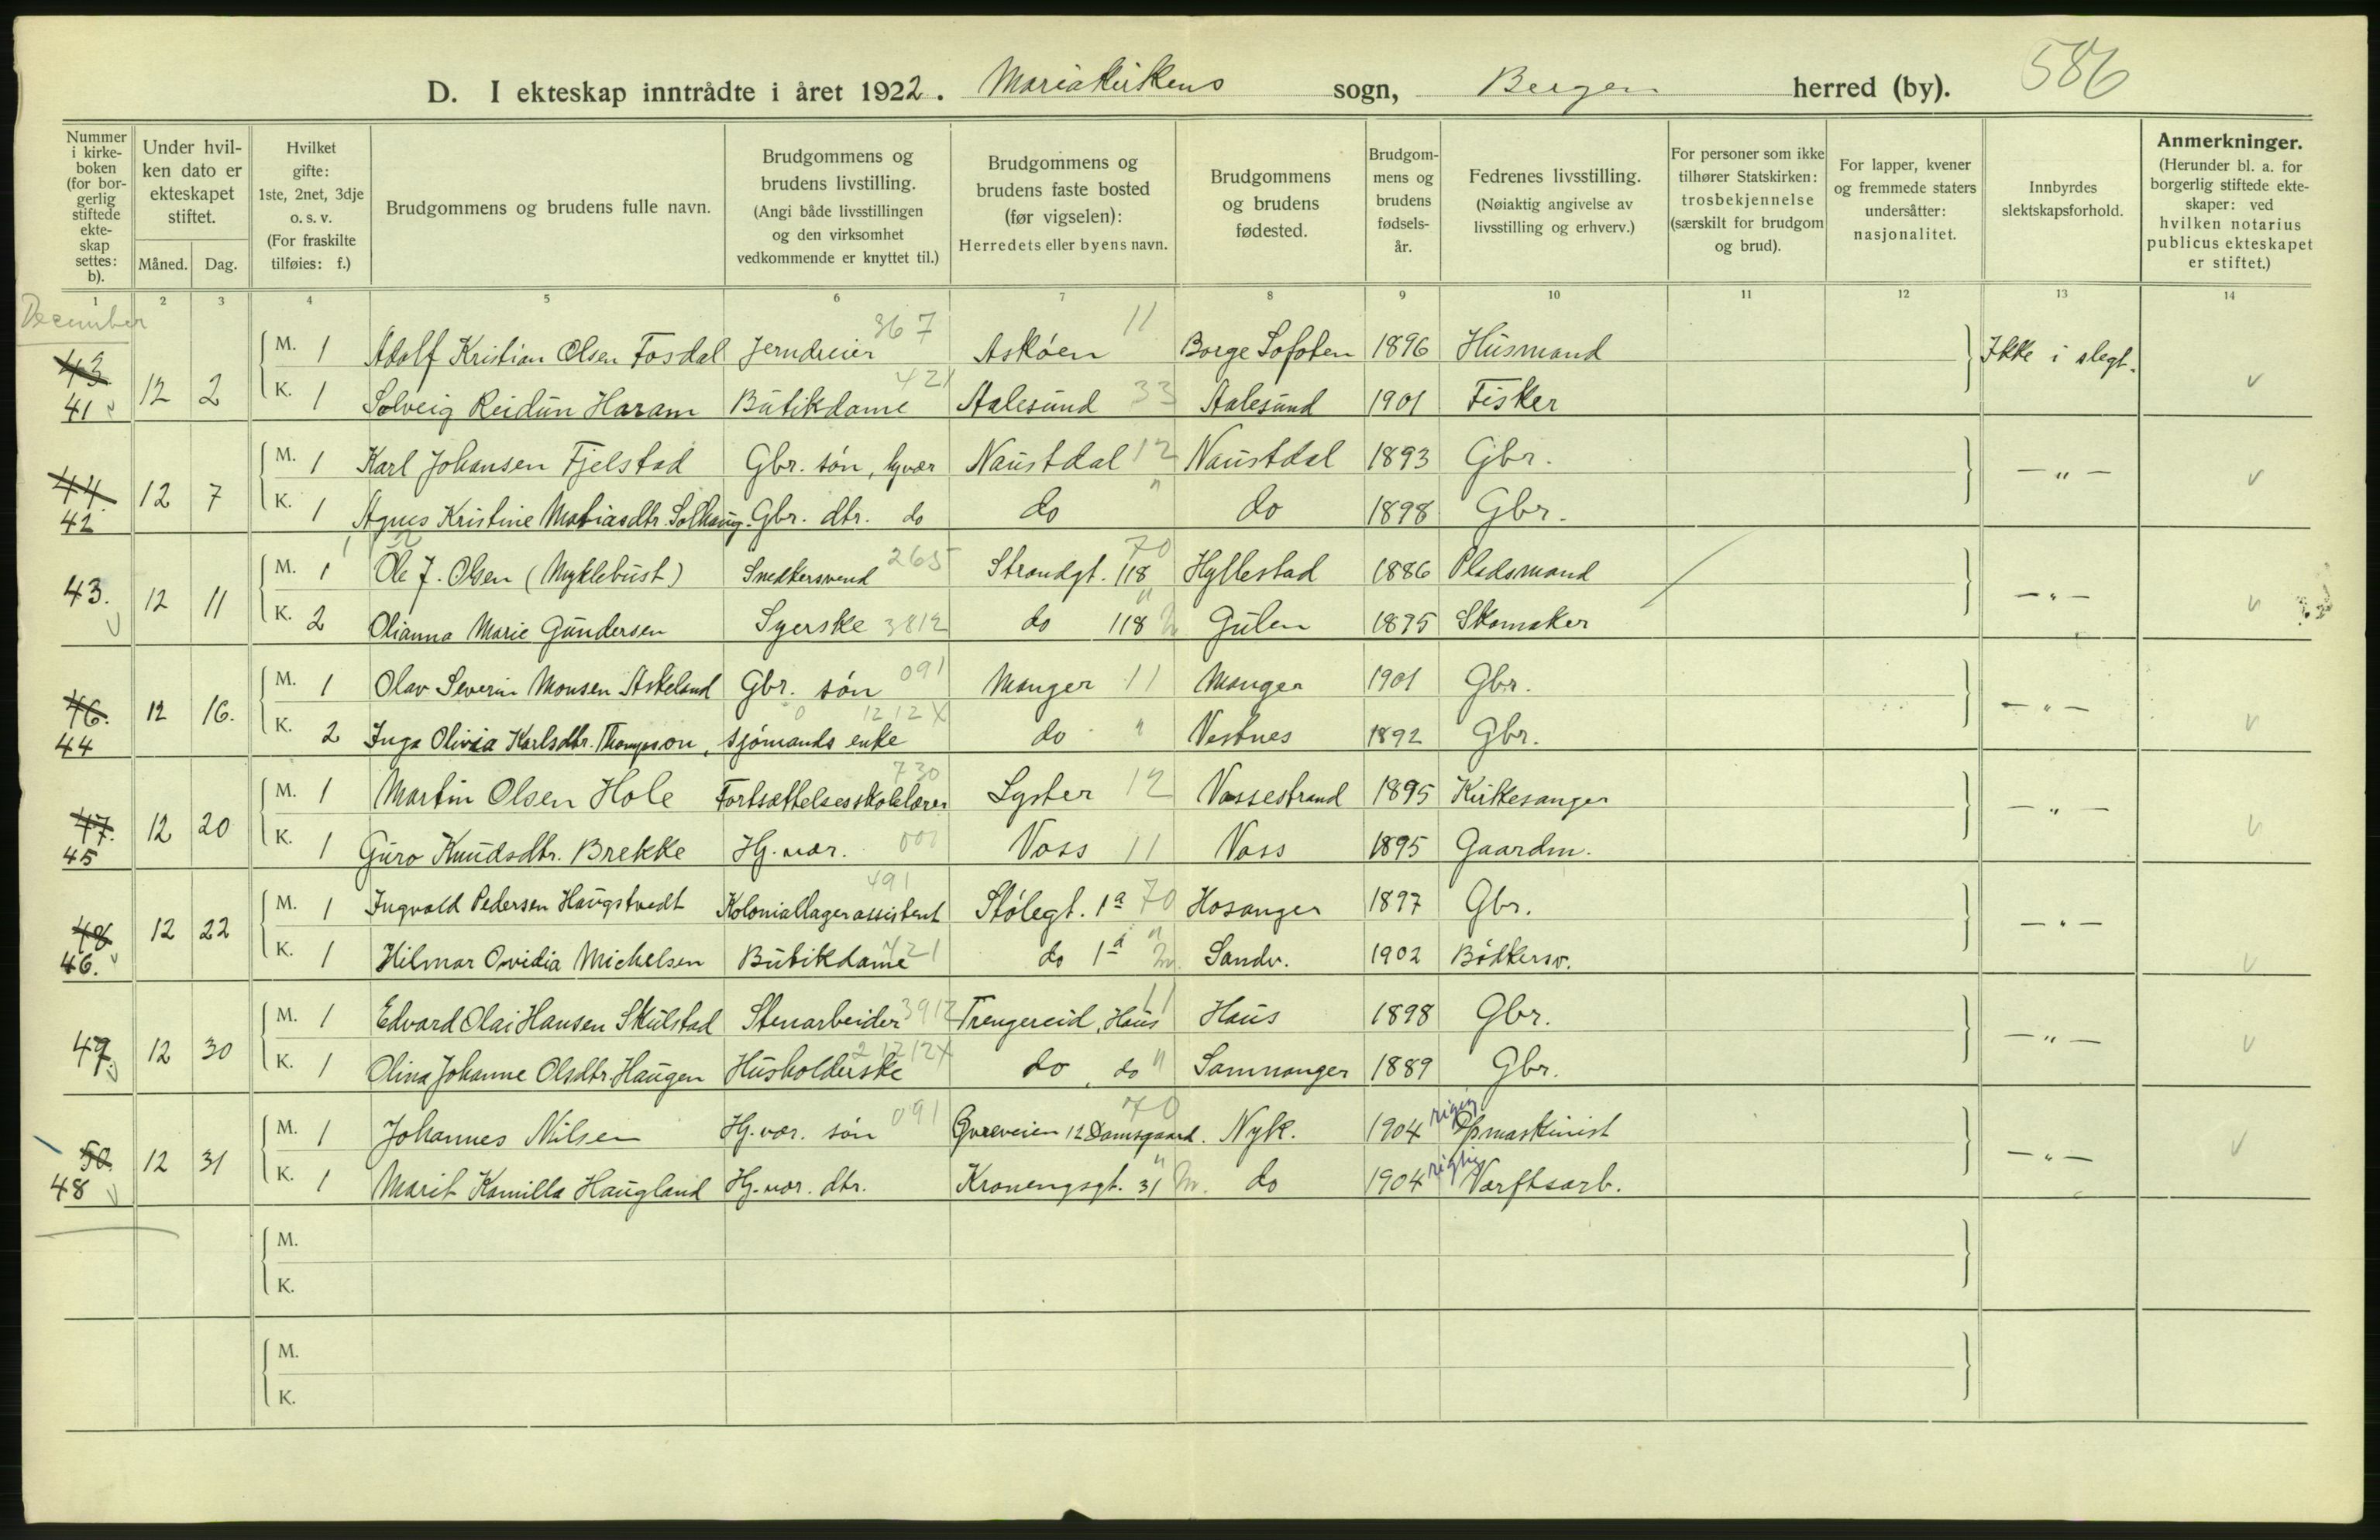 586
D. I ekteskap inntrådte i året 1922. Mariakirkens sogn, Bergen herred (by).
Nummer i kirke-boken (for bor-gerlig stiftede ekte-skap settes: b).
Under hvil-ken dato er ekteskapet stiftet.
Måned. Dag.
Hvilket gifte: 1ste, 2net, 3dje o. s. v. (For fraskilte tilføies: f.)
Brudgommens og brudens fulle navn.
Brudgommens og brudens livstilling. (Angi både livsstillingen og den virksomhet vedkommende er knyttet til.)
Brudgommens og brudens faste bosted (før vigselen): Herredets eller byens navn.
Brudgommens og brudens fødested.
Brudgom-mens og brudens fødsels-år.
Fedrenes livsstilling. (Nøiaktig angivelse av livsstilling og erhverv.)
For personer som ikke tilhører Statskirken: trosbekjennelse (særskilt for brudgom og brud).
For lapper, kvener og fremmede staters undersåtter: nasjonalitet.
Innbyrdes slektskapsforhold.
Anmerkninger. (Herunder bl. a. for borgerlig stiftede ekte-skaper: ved hvilken notarius publicus ekteskapet er stiftet.)
1 2 3 4 5 6 7 8 9 10 11 12 13 14
December
43. 41 12 2
M. 1 Adolf Kristian Olsen Fosdal Jerndreier 367 Askøen 11 Borge Lofoten 1896 Husmand Ikke i slegt.
K. 1 Solveig Reidun Haram Butikdame 421 Aalesund 33 Aalesund 1901 Fisker
44. 42 12 7
M. 1 Karl Johansen Fjelstad Gbr. søn, hjvær Naustdal 12 Naustdal 1893 Gbr. — " —
K. 1 Agnes Kristine Matiasdtr. Solhaug Gbr. dtr. do do " do 1898 Gbr.
43. 12 11
M. 1 Ole J. Olsen (Myklebust) Snedkersvend 265 Strandgt. 118 70 Hyllestad 1886 Pladsmand — " —
K. 2 Olianna Marie Gundersen Syerske 3812 do 118 " Gulen 1875 Skomaker
46. 44 12 16.
M. 1 Olav Severin Monsen Askeland Gbr. søn 091 Manger 11 Manger 1901 Gbr. — " —
K. 2 Inga Olivia Karlsdtr. Thompson, sjømands enke 0 1212X do " Vestnes 1892 Gbr.
47. 45 12 20
M. 1 Martin Olsen Hole Fortsættelsesskolelærer 730 Lyster 12 Vossestrand 1895 Kirkesanger — " —
K. 1 Guro Knudsdtr. Brekke Hj. vær. 001 Voss 11 Voss 1895 Gaardm.
48 46. 12 22
M. 1 Ingvald Pedersen Haugstvedt Koloniallagerassistent 491 Stølegt. 1a 70 Hosanger 1897 Gbr. — " —
K. 1 Hilmar Ovidia Michelsen Butikdame 421 do 1a " Sandv. 1902 Bødkersv.
47. 12 30
M. 1 Edvard Olai Hansen Skulstad Stenarbeider 3912 Trengereid, Haus 11 Haus 1898 Gbr. — " —
K. 1 Olina Johanne Olsdtr. Haugen Husholderske 21212X do, do " Samnanger 1889 Gbr.
50. 48 12 31
M. 1 Johannes Nilsen Hj. vær. søn 091 12 Damsgaard. 70 Nyk. 1904 rigtig Opmaskinist — " —
K. 1 Marit Kamilla Haugland Hj. vær. dtr. Kronengsgt. 31 " do 1904 rigtig Værftsarb.
M.
K.
M.
K.